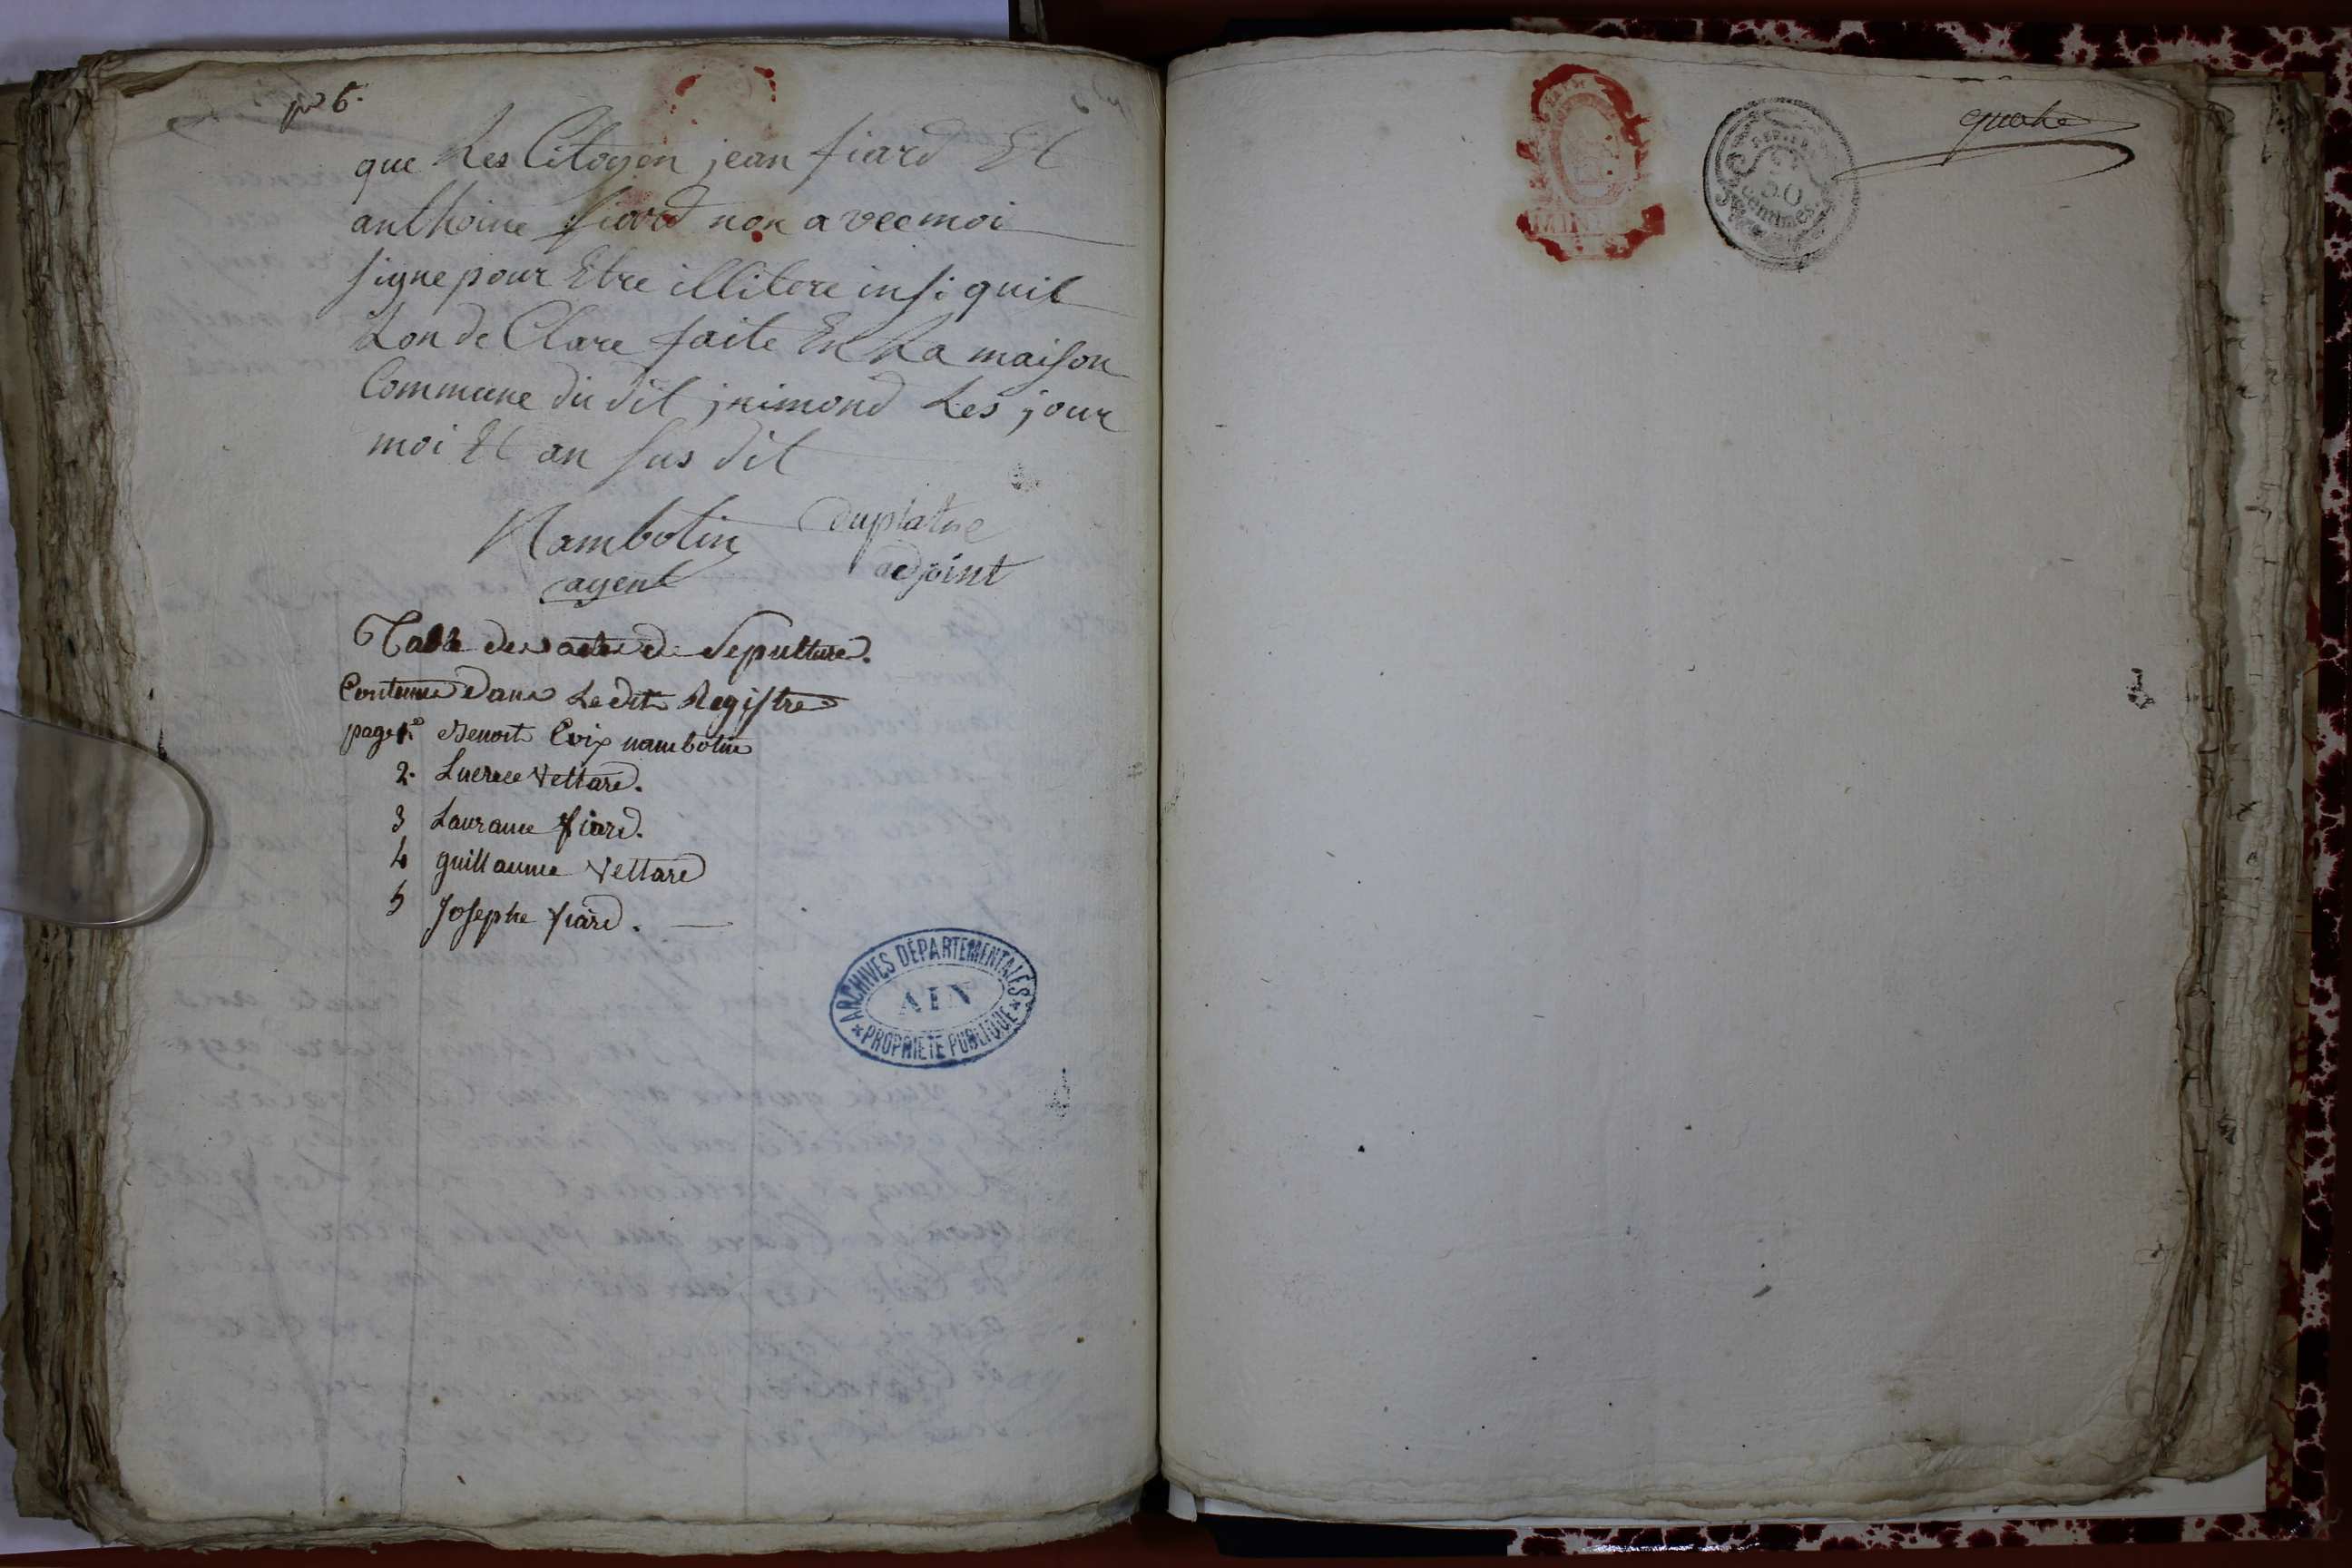 que Les Citoyen jean fiard Et
anthoine fiard non avec moi
signe pour Etre illitere insi quil
Lon de Clare faite En La maison
Commune du dit jnimond Les jour
moi Et an sus dit
Nambotin duplatne
agent adjoint
Table des actes de Sepulture.
Contenus Dans Le dit Registre
page 1º Benoit Croix nambotin
2. Lucrece Vettard.
3 Laurance fiard.
4 guillaume Vettard
5 Josephe fiard.
ARCHIVES DÉPARTEMENTALES
AIN
PROPRIÉTÉ PUBLIQUE
50
centimes.